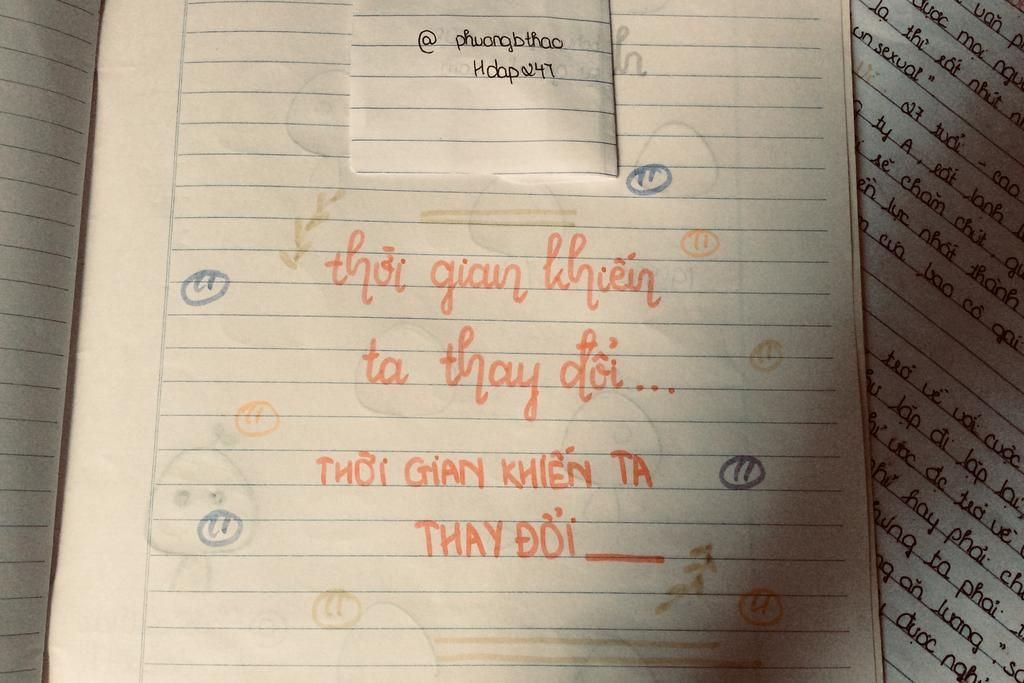 @ phuongbthao
Hdap247
thời gian khiến
ta thay đổi...
THỜI GIAN KHIẾN TA
THAY ĐỔI
văn
được mọi
là thì rất nhút
un sexual"
27 tuổi - cao
ty A, rất lạnh
sẽ chăm chút
lực nhất thành
của bao cô gái
trở về với cuộc
lặp đi lặp lại
ước đc trở về
hay phải
ta phải
ăn lương, "
được